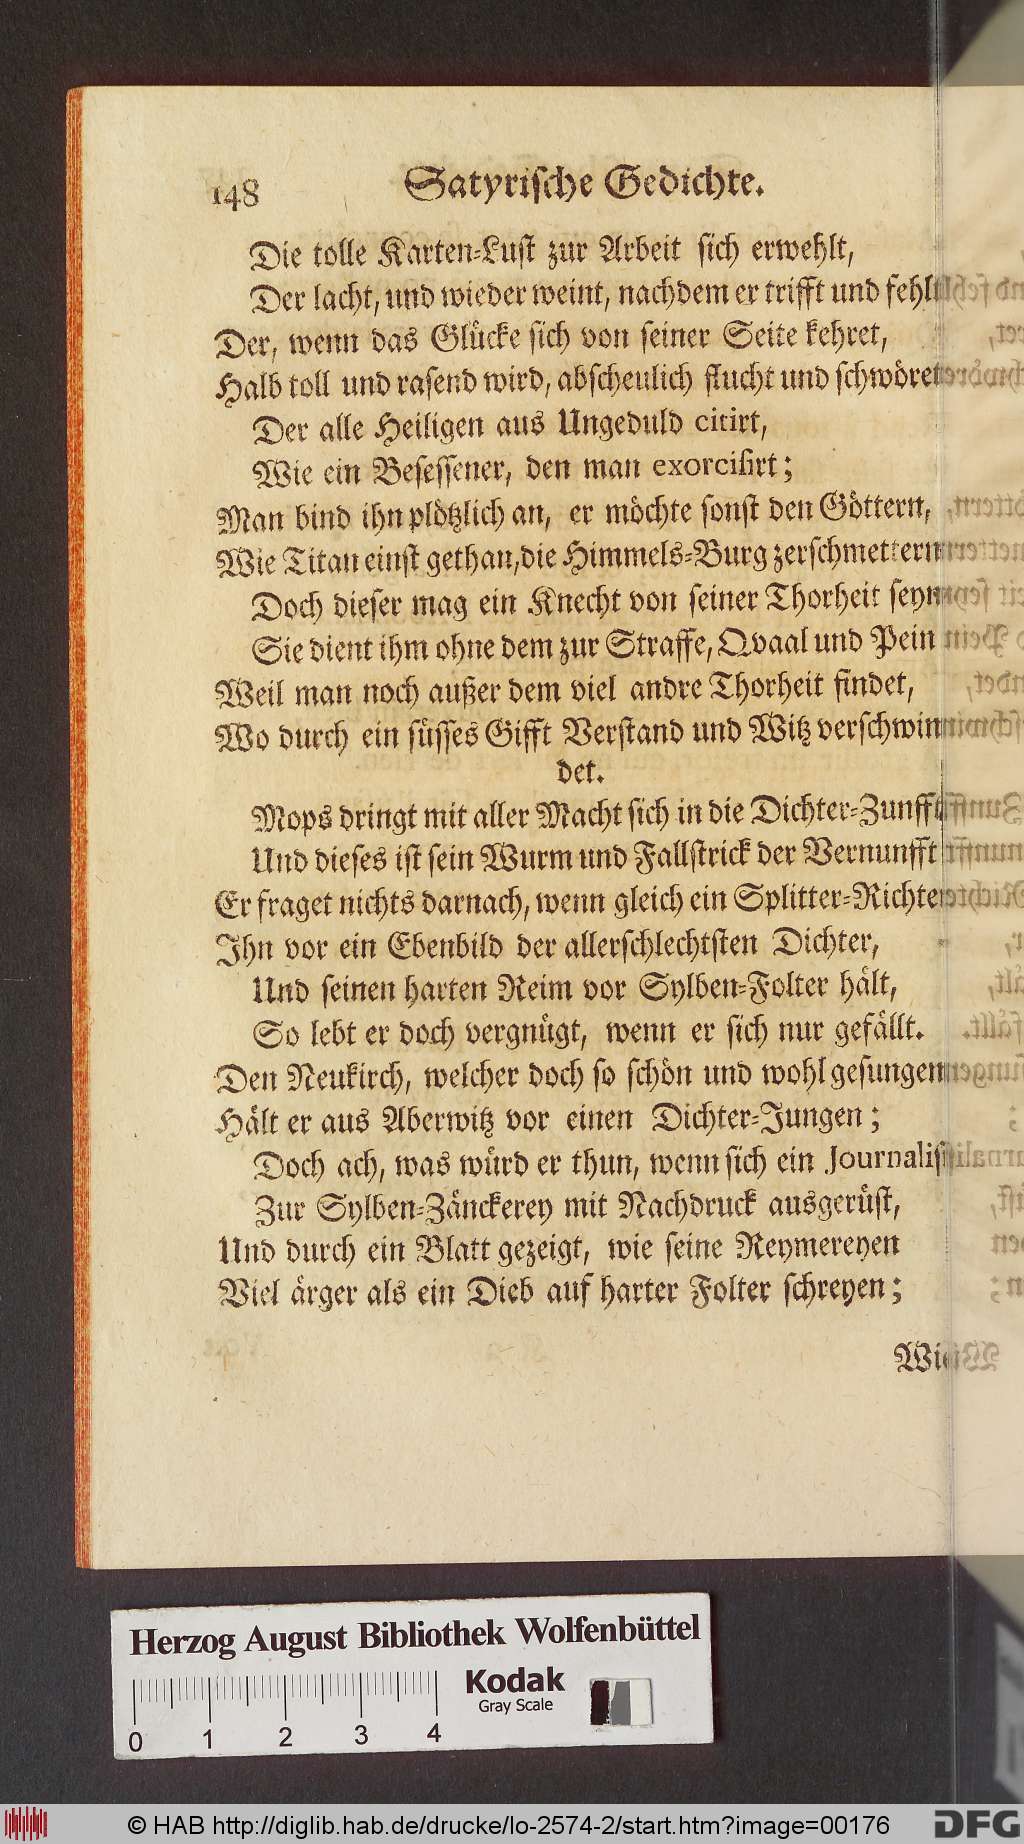 148 Satyrische Gedichte.
Die tolle Karten-Lust zur Arbeit sich erwehlt,
Der lacht, und wieder weint, nachdem er trifft und fehlt
Der, wenn das Glücke sich von seiner Seite kehret,
Halb toll und rasend wird, abscheulich flucht und schwöret
Der alle Heiligen aus Ungeduld citirt,
Wie ein Besessener, den man exorcisirt;
Man bind ihn plötzlich an, er möchte sonst den Göttern,
Wie Titan einst gethan, die Himmels-Burg zerschmettern
Doch dieser mag ein Knecht von seiner Thorheit seyn
Sie dient ihm ohne dem zur Straffe, Qvaal und Pein
Weil man noch außer dem viel andre Thorheit findet,
Wo durch ein süsses Gifft Verstand und Witz verschwin
det.
Mops dringt mit aller Macht sich in die Dichter-Zunfft
Und dieses ist sein Wurm und Fallstrick der Vernunfft
Er fraget nichts darnach, wenn gleich ein Splitter-Richter
Ihn vor ein Ebenbild der allerschlechtsten Dichter,
Und seinen harten Reim vor Sylben-Folter hält,
So lebt er doch vergnügt, wenn er sich nur gefällt.
Den Neukirch, welcher doch so schön und wohl gesungen
Hält er aus Aberwitz vor einen Dichter-Jungen;
Doch ach, was würd er thun, wenn sich ein Journalist
Zur Sylben-Zänckerey mit Nachdruck ausgerüst,
Und durch ein Blatt gezeigt, wie seine Reymereyen
Viel ärger als ein Dieb auf harter Folter schreyen;
Wie
Herzog August Bibliothek Wolfenbüttel
Kodak
Gray Scale
0 1 2 3 4
© HAB http://diglib.hab.de/drucke/lo-2574-2/start.htm?image=00176
DFG